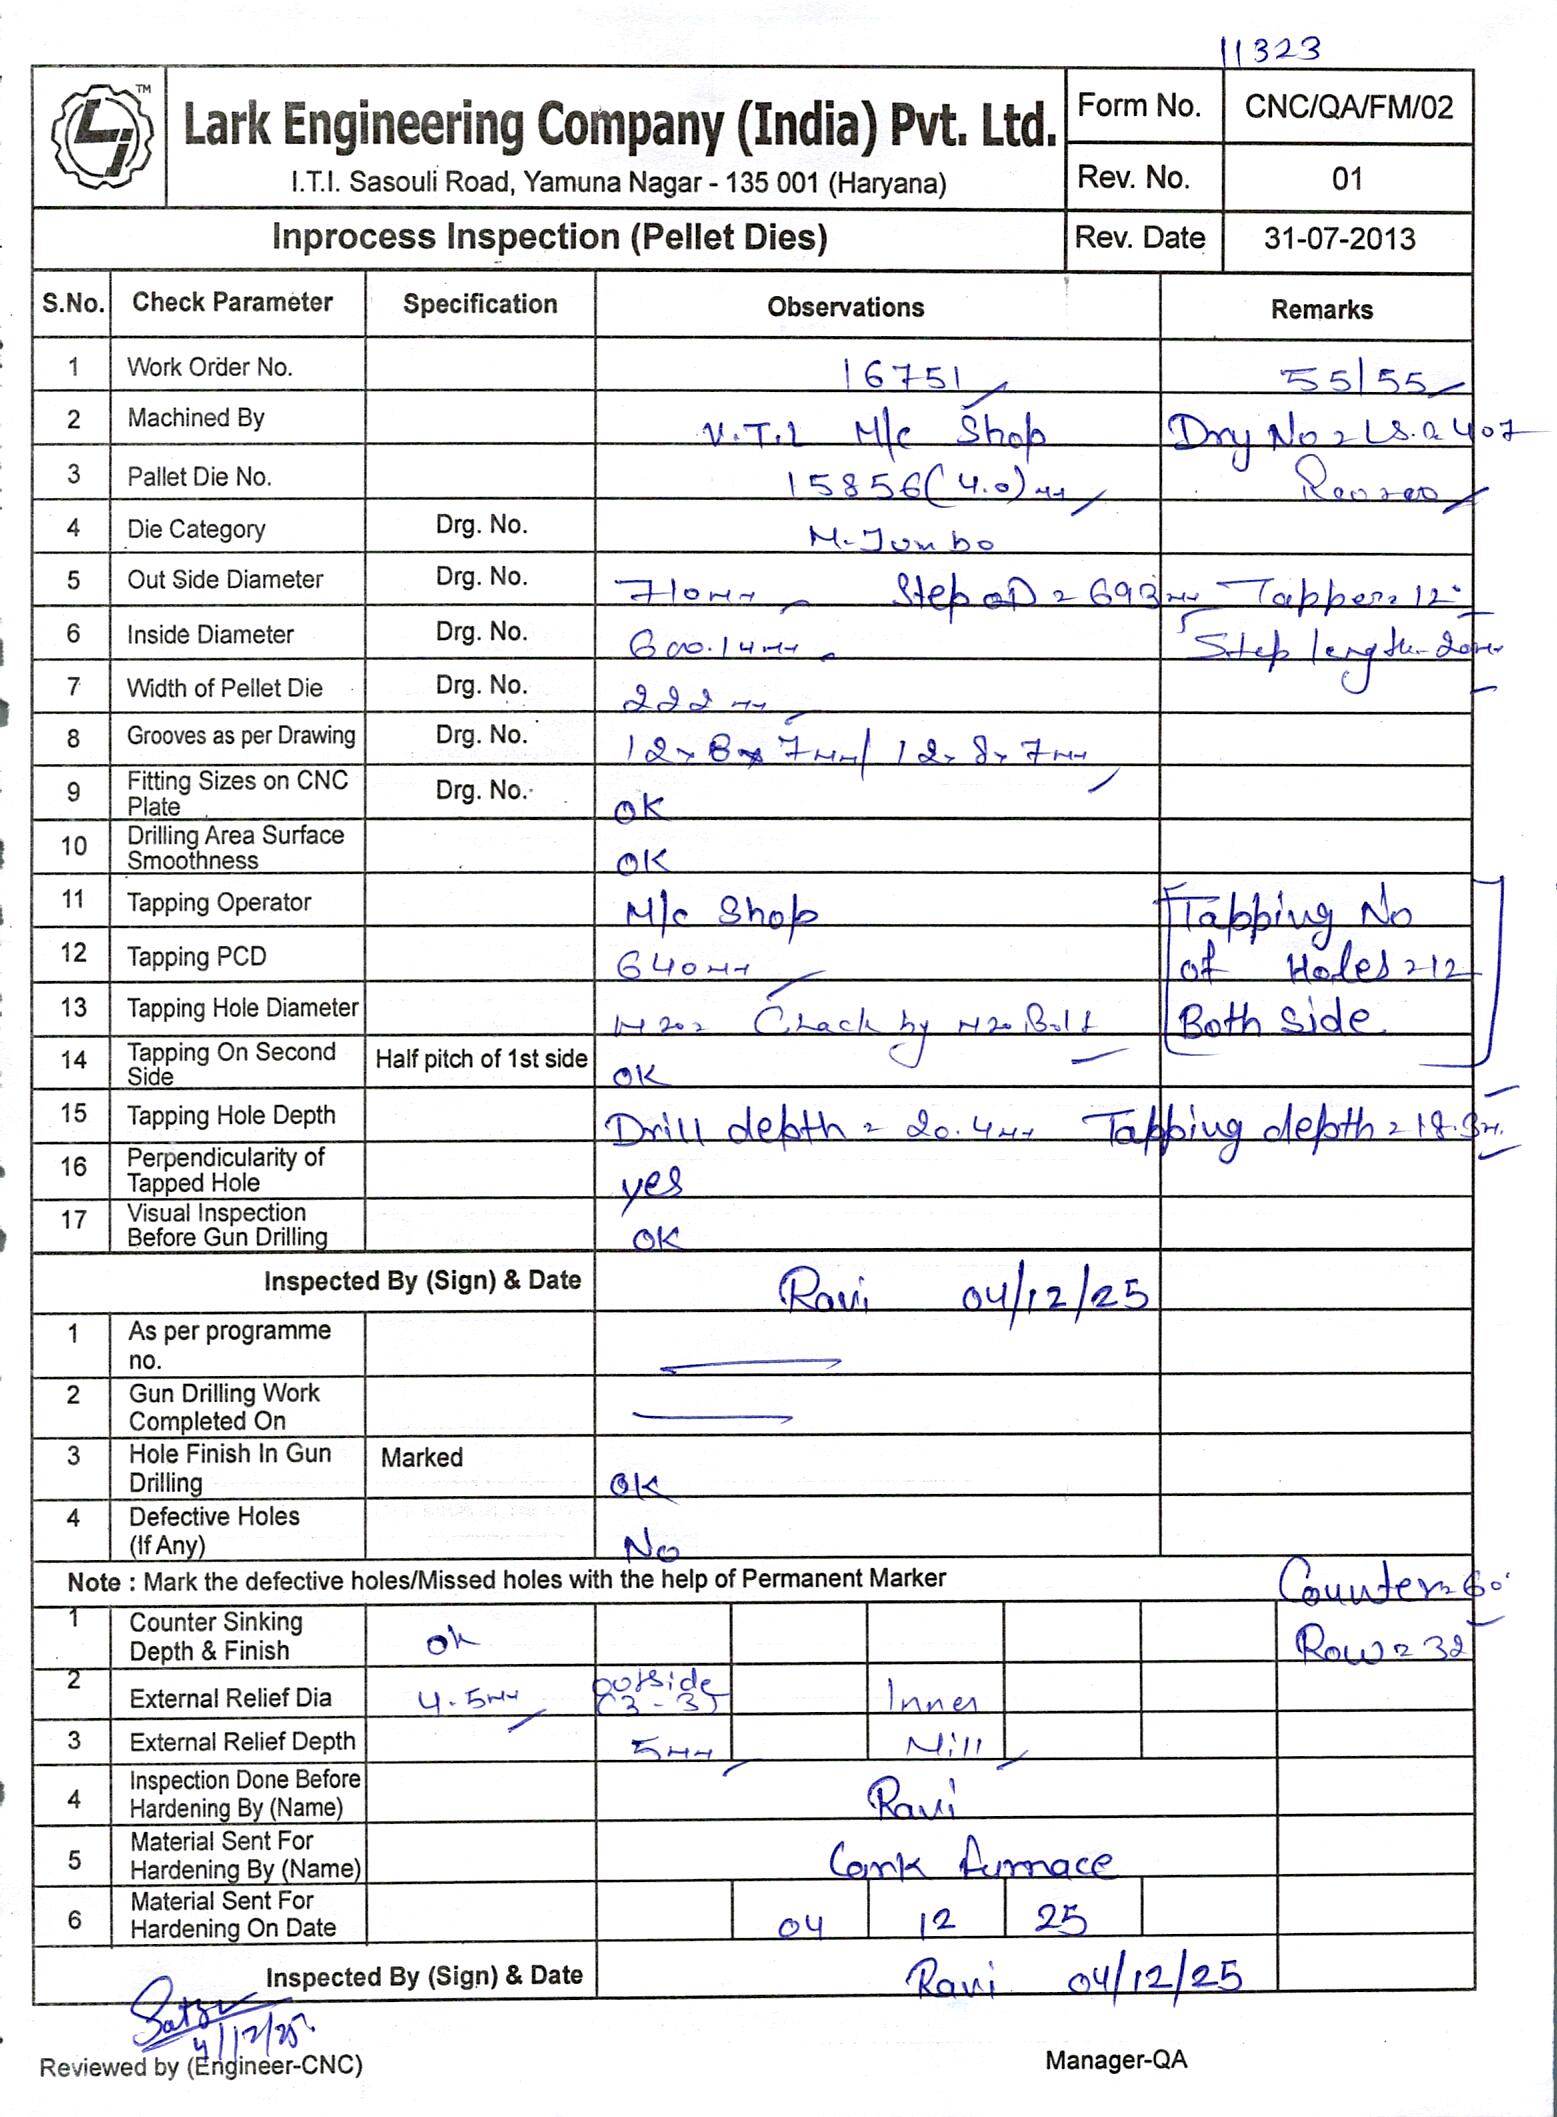 11323
LI TM
Lark Engineering Company (India) Pvt. Ltd.
I.T.I. Sasouli Road, Yamuna Nagar - 135 001 (Haryana)
Form No. CNC/QA/FM/02
Rev. No. 01
Inprocess Inspection (Pellet Dies) Rev. Date 31-07-2013
S.No. Check Parameter Specification Observations Remarks
1 Work Order No. 16751 55/55
2 Machined By V.T.L M/c Shop Dry No = LS.2407
3 Pallet Die No. 15856(4.0)mm
4 Die Category Drg. No. M-Jumbo
5 Out Side Diameter Drg. No. 710mm Step OD = 693mm Tapper = 12°
6 Inside Diameter Drg. No. 600.14mm Step length = 20mm
7 Width of Pellet Die Drg. No. 222mm
8 Grooves as per Drawing Drg. No. 12x8x7mm/12x8x7mm
9 Fitting Sizes on CNC Plate Drg. No. OK
10 Drilling Area Surface Smoothness OK
11 Tapping Operator M/c Shop Tapping No
12 Tapping PCD 640mm of Holes = 12
13 Tapping Hole Diameter M20 = Chack by M20 Bolt Both Side
14 Tapping On Second Side Half pitch of 1st side OK
15 Tapping Hole Depth Drill depth = 20.4mm Tapping depth =
16 Perpendicularity of Tapped Hole yes
17 Visual Inspection Before Gun Drilling OK
Inspected By (Sign) & Date Ravi 04/12/25
1 As per programme no.
2 Gun Drilling Work Completed On
3 Hole Finish In Gun Drilling Marked OK
4 Defective Holes (If Any) No
Note : Mark the defective holes/Missed holes with the help of Permanent Marker Counter = 60°
1 Counter Sinking Depth & Finish ok Row = 32
2 External Relief Dia 4.5mm outside (3-3) Inner
3 External Relief Depth 5mm Nill
4 Inspection Done Before Hardening By (Name) Ravi
5 Material Sent For Hardening By (Name) furnace
6 Material Sent For Hardening On Date 04 12 25
Inspected By (Sign) & Date Ravi 04/12/25
4/12/25
Reviewed by (Engineer-CNC) Manager-QA